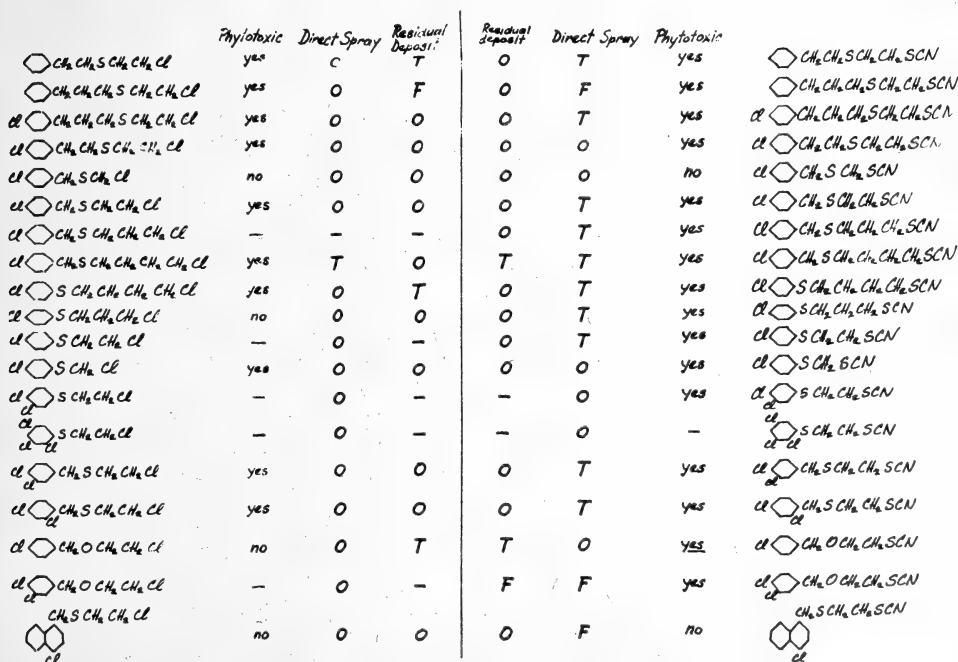 Phytotoxic Direct Spray Residual Deposit Residual deposit Direct Spray Phytotoxic
CH₂CH₂SCH₂CH₂Cl yes C T O T yes CH₂CH₂SCH₂CH₂SCN
CH₂CH₂CH₂SCH₂CH₂Cl yes O F O F yes CH₂CH₂CH₂SCH₂CH₂SCN
Cl CH₂CH₂CH₂SCH₂CH₂Cl yes O O O T yes Cl CH₂CH₂CH₂SCH₂CH₂SCN
Cl CH₂CH₂SCH₂CH₂Cl yes O O O O yes Cl CH₂CH₂SCH₂CH₂SCN
Cl CH₂SCH₂Cl no O O O O no Cl CH₂SCH₂SCN
Cl CH₂SCH₂CH₂Cl yes O O O T yes Cl CH₂SCH₂CH₂SCN
Cl CH₂SCH₂CH₂CH₂Cl — — — O T yes Cl CH₂SCH₂CH₂CH₂SCN
Cl CH₂SCH₂CH₂CH₂CH₂Cl yes T O T T yes Cl CH₂SCH₂CH₂CH₂CH₂SCN
Cl SCH₂CH₂CH₂CH₂Cl yes O T O T yes Cl SCH₂CH₂CH₂CH₂SCN
Cl SCH₂CH₂CH₂Cl no O O O T yes Cl SCH₂CH₂CH₂SCN
Cl SCH₂CH₂Cl — O — O T yes Cl SCH₂CH₂SCN
Cl SCH₂Cl yes O O O O yes Cl SCH₂SCN
Cl SCH₂CH₂Cl — O — — O yes Cl SCH₂CH₂SCN
Cl Cl
Cl
SCH₂CH₂Cl — O — — O — SCH₂CH₂SCN
Cl Cl Cl Cl
Cl CH₂SCH₂CH₂Cl yes O O O T yes Cl CH₂SCH₂CH₂SCN
Cl Cl
Cl CH₂SCH₂CH₂Cl yes O O O T yes Cl CH₂SCH₂CH₂SCN
Cl Cl
Cl CH₂OCH₂CH₂Cl no O T T O yes Cl CH₂OCH₂CH₂SCN
Cl CH₂OCH₂CH₂Cl — O — F F yes Cl CH₂OCH₂CH₂SCN
Cl Cl
CH₂SCH₂CH₂Cl CH₂SCH₂CH₂SCN
no O O O F no
Cl Cl